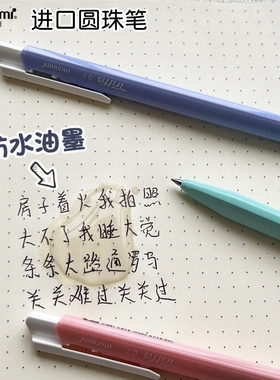 mi 进口圆珠笔
Triffis 0.7
monami
防水油墨
房子着火我拍照
大不了我睡大觉
条条大路通罗马
关关难过关关过
Triffis 0.7